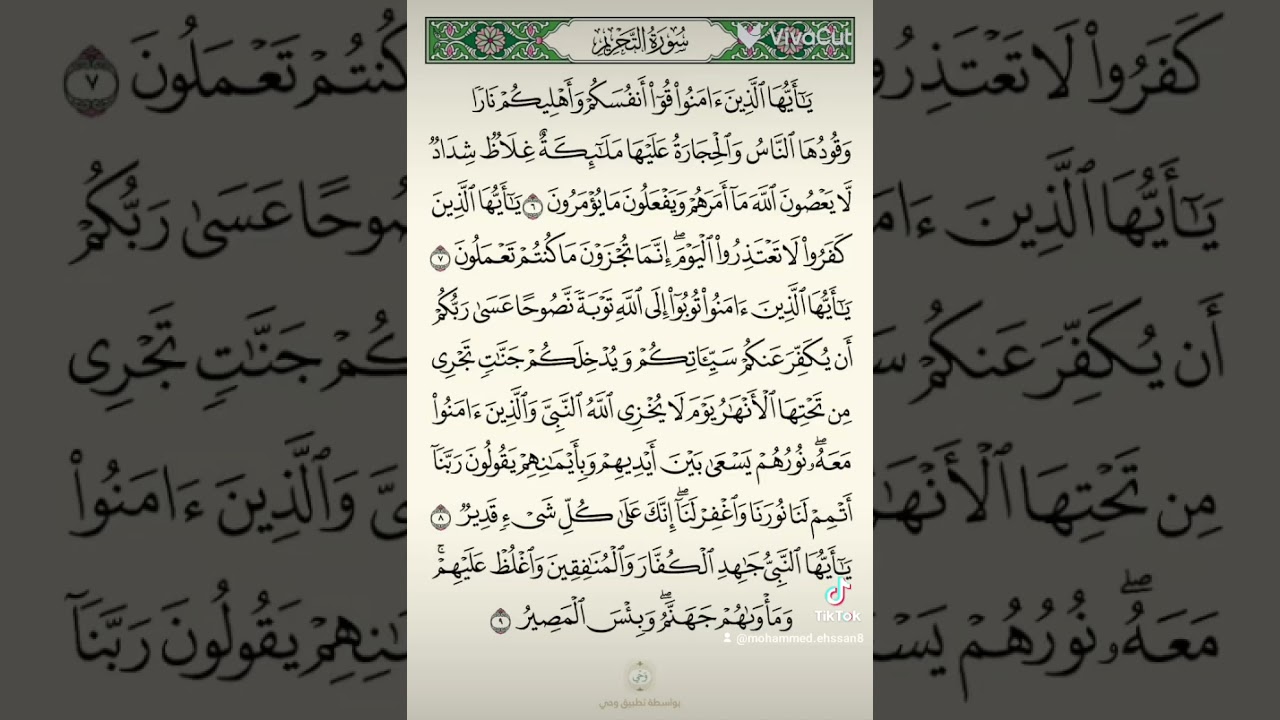 سُورَةُ التَّحْرِيمِ
VivaCut
يَٰٓأَيُّهَا ٱلَّذِينَ ءَامَنُوا۟ قُوٓا۟ أَنفُسَكُمْ وَأَهْلِيكُمْ نَارًا
وَقُودُهَا ٱلنَّاسُ وَٱلْحِجَارَةُ عَلَيْهَا مَلَٰٓئِكَةٌ غِلَاظٌ شِدَادٌ
لَّا يَعْصُونَ ٱللَّهَ مَآ أَمَرَهُمْ وَيَفْعَلُونَ مَا يُؤْمَرُونَ ٦ يَٰٓأَيُّهَا ٱلَّذِينَ
كَفَرُوا۟ لَا تَعْتَذِرُوا۟ ٱلْيَوْمَ ۖ إِنَّمَا تُجْزَوْنَ مَا كُنتُمْ تَعْمَلُونَ ٧
يَٰٓأَيُّهَا ٱلَّذِينَ ءَامَنُوا۟ تُوبُوٓا۟ إِلَى ٱللَّهِ تَوْبَةً نَّصُوحًا عَسَىٰ رَبُّكُمْ
أَن يُكَفِّرَ عَنكُمْ سَيِّـَٔاتِكُمْ وَيُدْخِلَكُمْ جَنَّٰتٍ تَجْرِى
مِن تَحْتِهَا ٱلْأَنْهَٰرُ يَوْمَ لَا يُخْزِى ٱللَّهُ ٱلنَّبِىَّ وَٱلَّذِينَ ءَامَنُوا۟
مَعَهُۥ ۖ نُورُهُمْ يَسْعَىٰ بَيْنَ أَيْدِيهِمْ وَبِأَيْمَٰنِهِمْ يَقُولُونَ رَبَّنَآ
أَتْمِمْ لَنَا نُورَنَا وَٱغْفِرْ لَنَآ ۖ إِنَّكَ عَلَىٰ كُلِّ شَىْءٍ قَدِيرٌ ٨
يَٰٓأَيُّهَا ٱلنَّبِىُّ جَٰهِدِ ٱلْكُفَّارَ وَٱلْمُنَٰفِقِينَ وَٱغْلُظْ عَلَيْهِمْ ۚ
وَمَأْوَىٰهُمْ جَهَنَّمُ ۖ وَبِئْسَ ٱلْمَصِيرُ ٩
TikTok
@mohammed.ehssan8
وَحْي
بواسطة تطبيق وحي